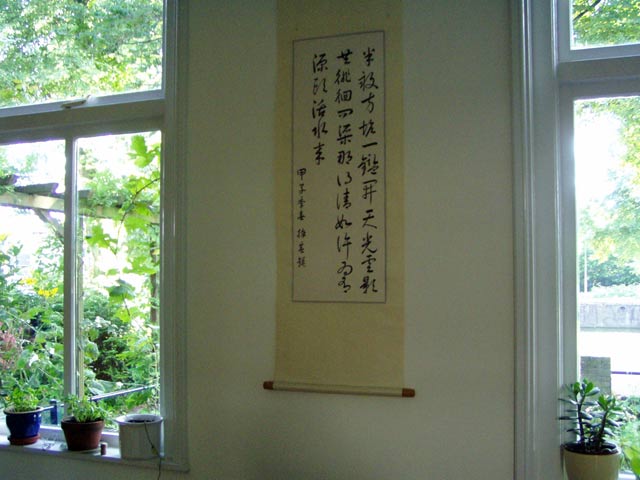 半畝方塘一鑑开天光雲影
共徘徊问渠那得清如许为有
源头活水来
甲子季春